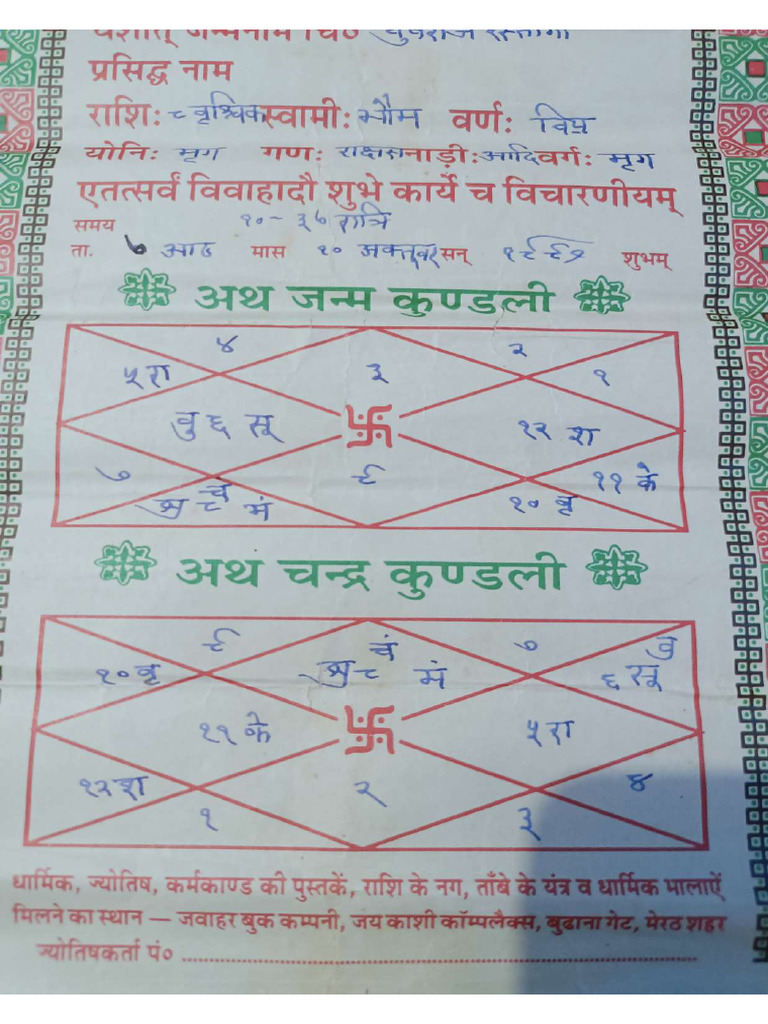 जन्मनाम चि० युवराज रस्तोगी
प्रसिद्ध नाम
राशि: ८ वृश्चिक स्वामी: भौम वर्ण: विप्र
योनि: मृग गण: राक्षस नाड़ी: आदि वर्ग: मृग
एतत्सर्वं विवाहादौ शुभे कार्ये च विचारणीयम्
समय १०-३७ रात्रि
ता. ७ आठ मास १० अक्तूबर सन् शुभम्
अथ जन्म कुण्डली
४ २
५ रा ३ १
बु ६ सू १२ श
७ ९ ११ के
शु ८ चं मं १० बृ
अथ चन्द्र कुण्डली
९ शु ८ चं मं ७ बु
१० बृ ६ सू
११ के ५ रा
१२ श २ ४
१ ३
धार्मिक, ज्योतिष, कर्मकाण्ड की पुस्तकें, राशि के नग, ताँबे के यंत्र व धार्मिक मालाऐं
मिलने का स्थान — जवाहर बुक कम्पनी, जय काशी कॉम्पलैक्स, बुढाना गेट, मेरठ शहर
ज्योतिषकर्ता पं० ........................................